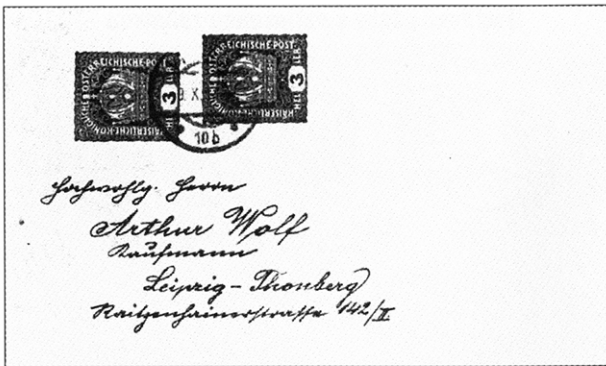 KAISERLICHE KÖNIGLICHE ÖSTERREICHISCHE POST
3
HELLER
KAISERLICHE KÖNIGLICHE ÖSTERREICHISCHE POST
3
HELLER
9. X.
10b
Hochwohlg. Herrn
Arthur Wolf
Kaufmann
Leipzig - Thonberg
Reitzenhainerstrasse 142/II